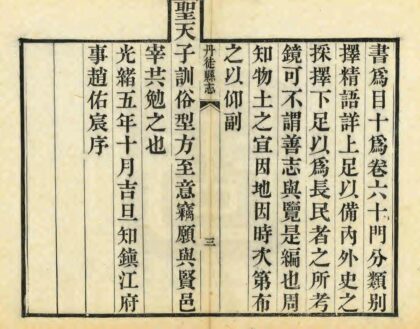 書爲目十爲卷六十門分類別
擇精語詳上足以備內外史之
採擇下足以爲長民者之所考
鏡可不謂善志與覽是編也周
知物土之宜因地因時次第布
之以仰副
丹徒縣志
三
聖天子訓俗型方至意竊願與賢邑
宰共勉之也
光緒五年十月吉旦知鎮江府
事趙佑宸序